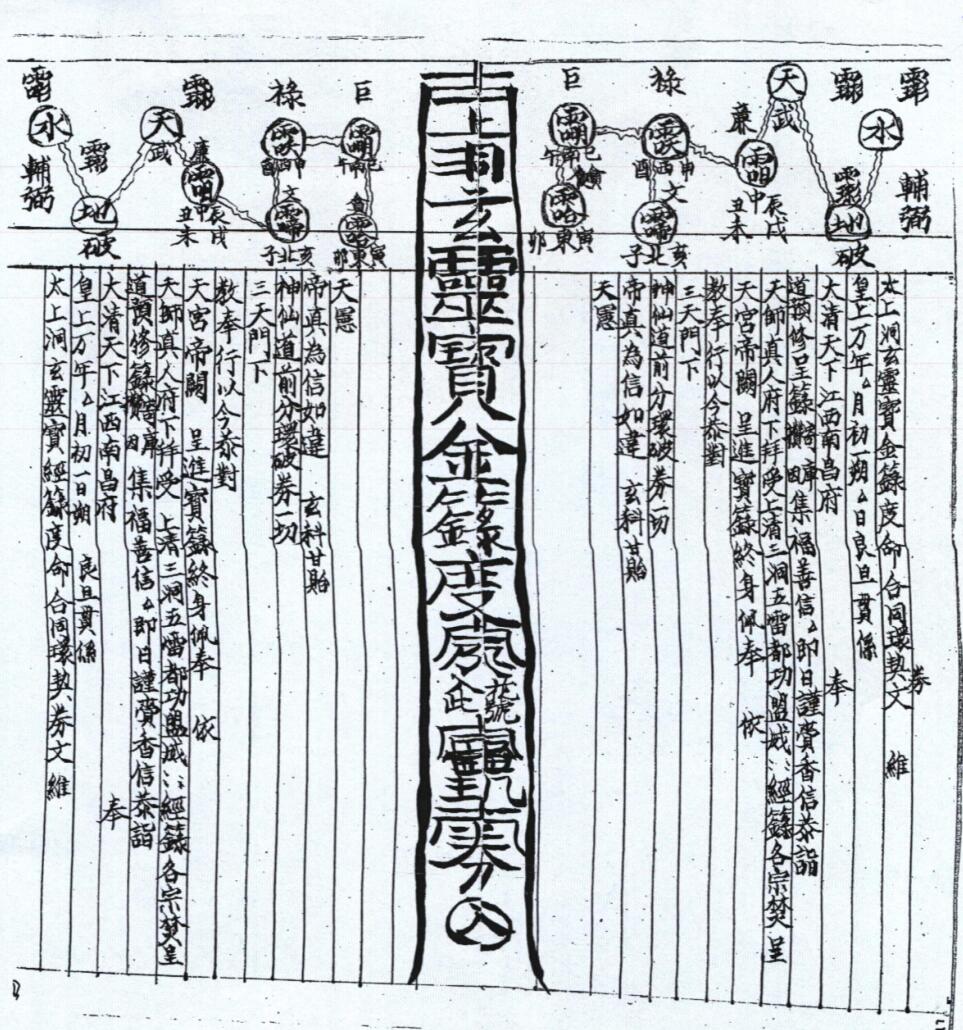 水
輔弼
破
地
天
武
廉
中
辰戌
丑未
祿
申
西
酉
文
亥
北
子
巨
巳
南
午
寅
東
卯
太上洞玄靈寶金籙度命合同環契文券 維
皇上万年厶月初一朔厶日良旦貫係
大清天下江西南昌府 奉
道預修呈籙庫因集福善信厶即日謹賫香信恭詣
天師真人府下拜受 上清三洞五雷都功盟威經籙各宗焚呈
天宮帝闕 呈進寶籙終身佩奉 依
教奉行以今恭對
三天門下
神仙道前分環破券一切
帝真為信如違 玄科甘貽
天憲
上洞玄靈寶金籙度
號
巨
巳
南
午
寅
東
卯
祿
申
西
酉
文
亥
北
子
廉
中
辰戌
丑未
天
武
地
破
水
輔弼
天愿
帝真為信如違 玄科甘貽
神仙道前分環破券一切
三天門下
教奉行以今恭對
天宮帝闕 呈進寶籙終身佩奉 依
天師真人府下拜受 上清三洞五雷都功盟威經籙各宗焚呈
道預修籙庫因集福善信厶即日謹賫香信恭詣
大清天下江西南昌府 奉
皇上万年厶月初一日朔 良旦貫係
太上洞玄靈寶經籙度命合同環契券文維